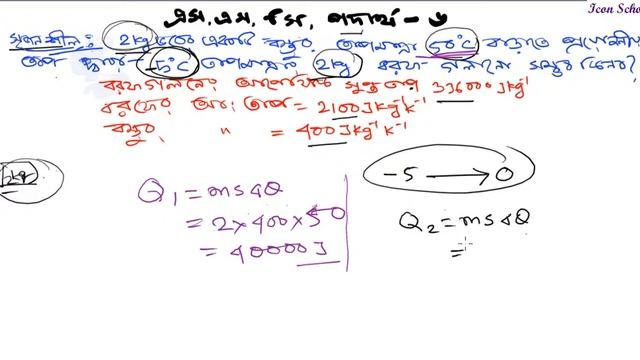 এস, এস, সি, পদার্থ - ৬
Icon Scho
সৃজনশীল: 2kg ভরের একটি বস্তুর তাপমাত্রা 50°C বাড়াতে প্রয়োজনীয়
তাপ দ্বারা -5°C তাপমাত্রার 2kg বরফ গলানো সম্ভব কিনা?
বরফ গলনের আপেক্ষিক সুপ্ত তাপ 336000 Jkg⁻¹
বরফের আঃ তাপ = 2100 Jkg⁻¹k⁻¹
বস্তুর " = 400 Jkg⁻¹k⁻¹
2kg
Q₁ = msΔθ
= 2×400×50
= 40000 J
-5 ⟶ 0
Q₂ = msΔθ
=